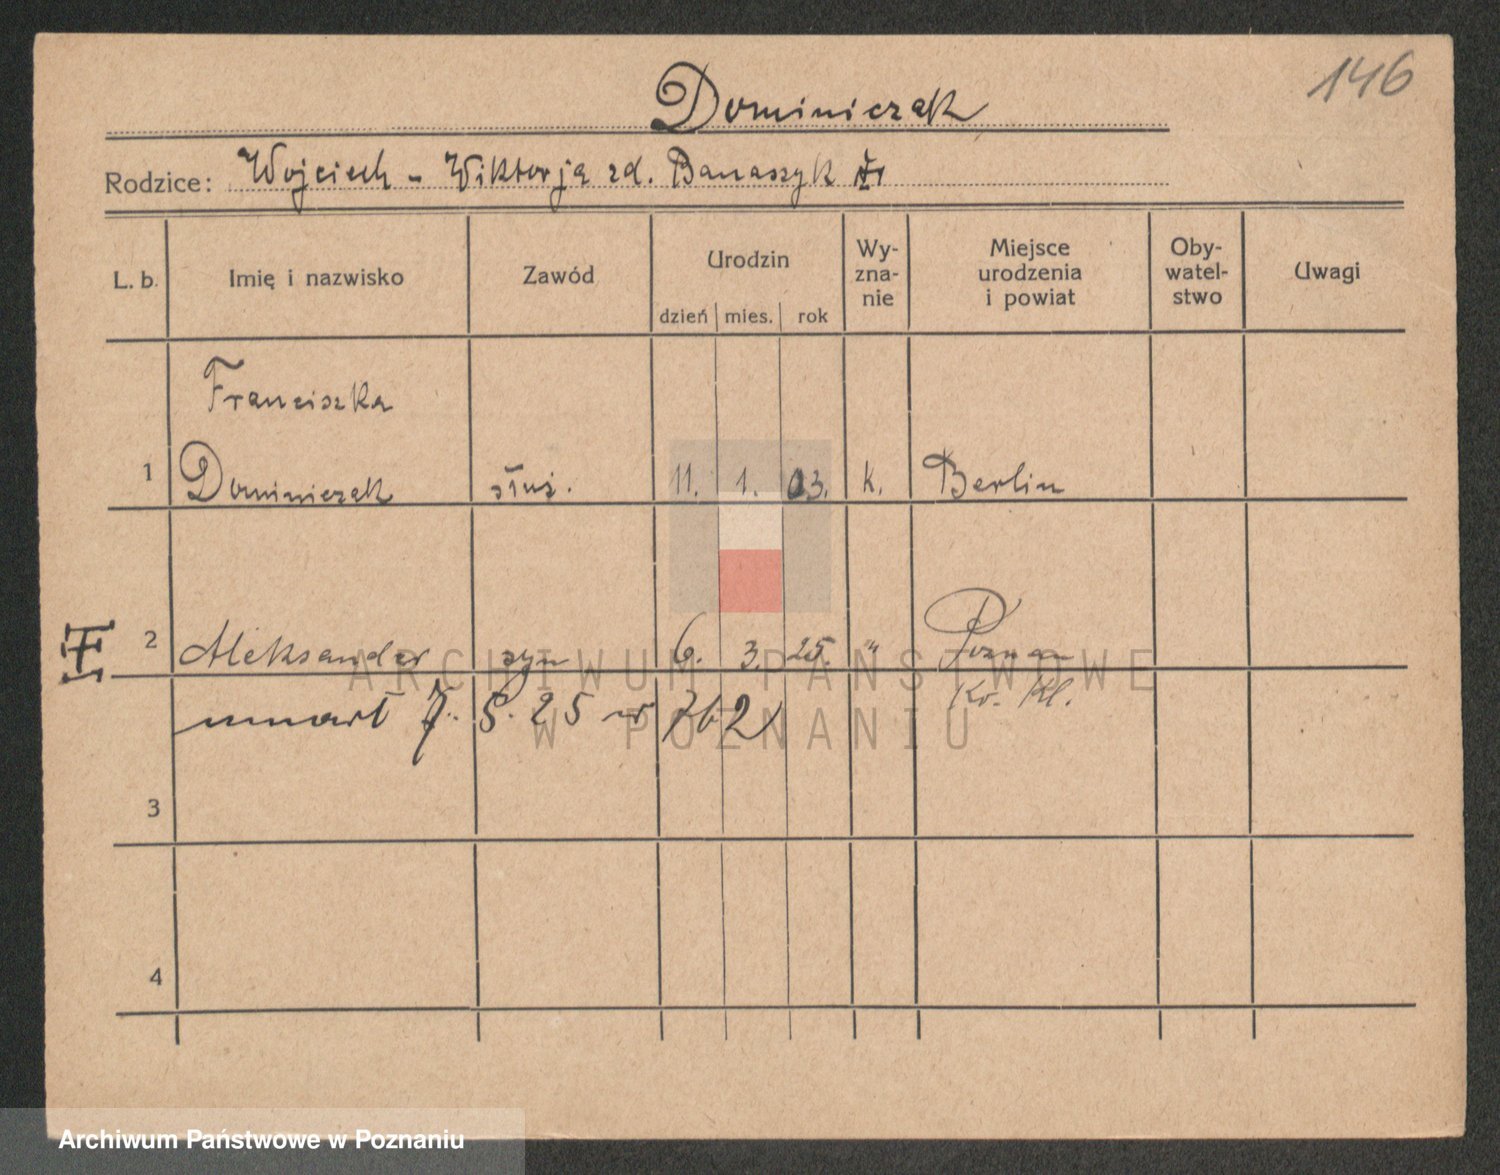 146
Dominiczak
Rodzice: Wojciech - Wiktorja zd. Banaszyk
L. b. Imię i nazwisko Zawód Urodzin Wy-zna-nie Miejsce urodzenia i powiat Oby-watel-stwo Uwagi
dzień mies. rok
Franciszka
1 Dominiczak służ. 11. 1. 03. k. Berlin
2 Aleksander syn 6. 3. 25. " Poznań
Kr. Kl.
umarł 7. 8. 25 nr 762
3
4
ARCHIWUM PAŃSTWOWE
W POZNANIU
Archiwum Państwowe w Poznaniu